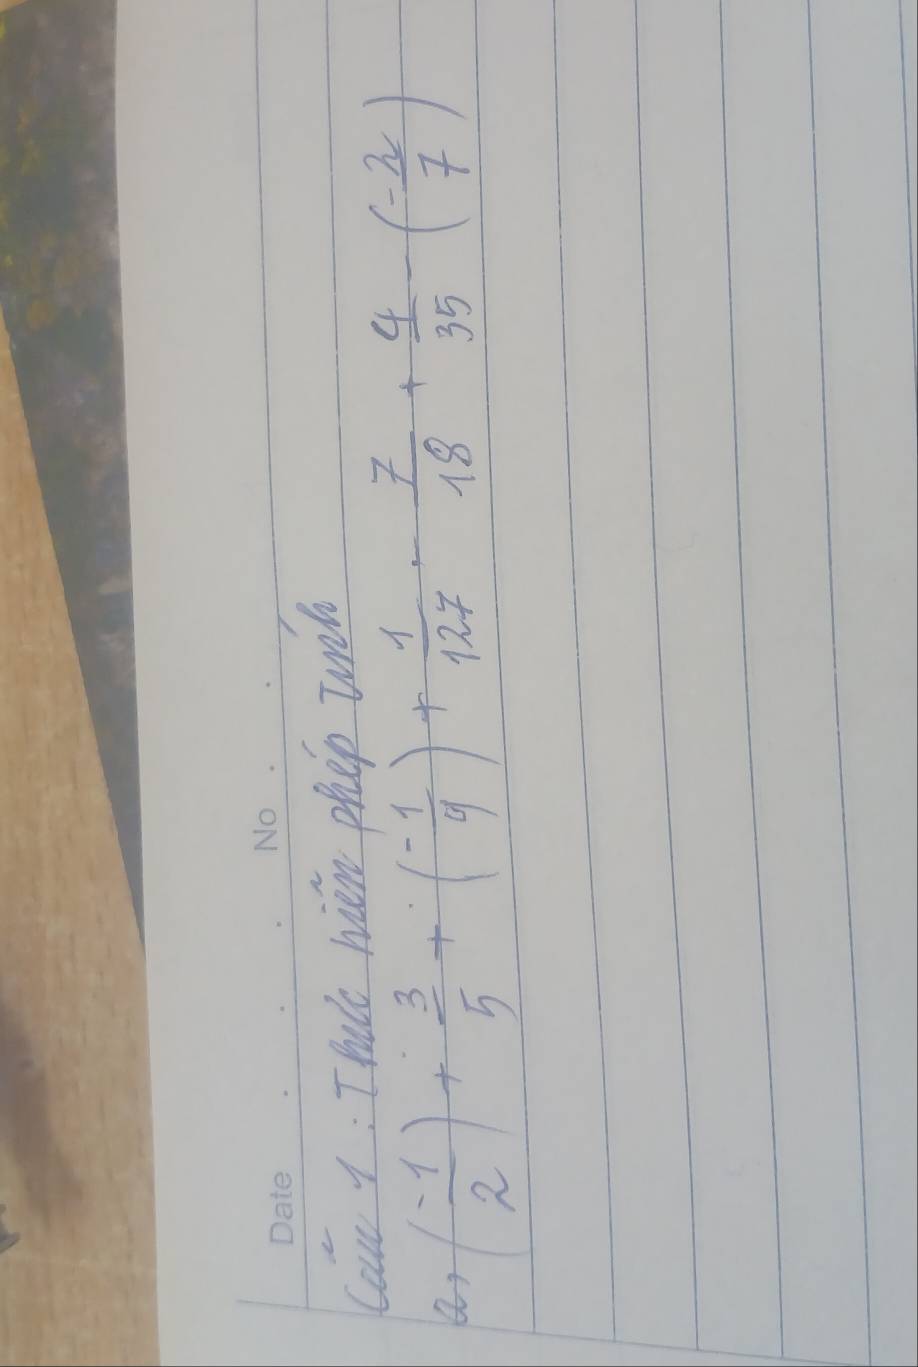 Date No
Câu 1 : Thực hiện phép tính
a, (-1/2) + 3/5 + (-1/9) + 1/127 - 7/18 + 4/35 - (-2/7)